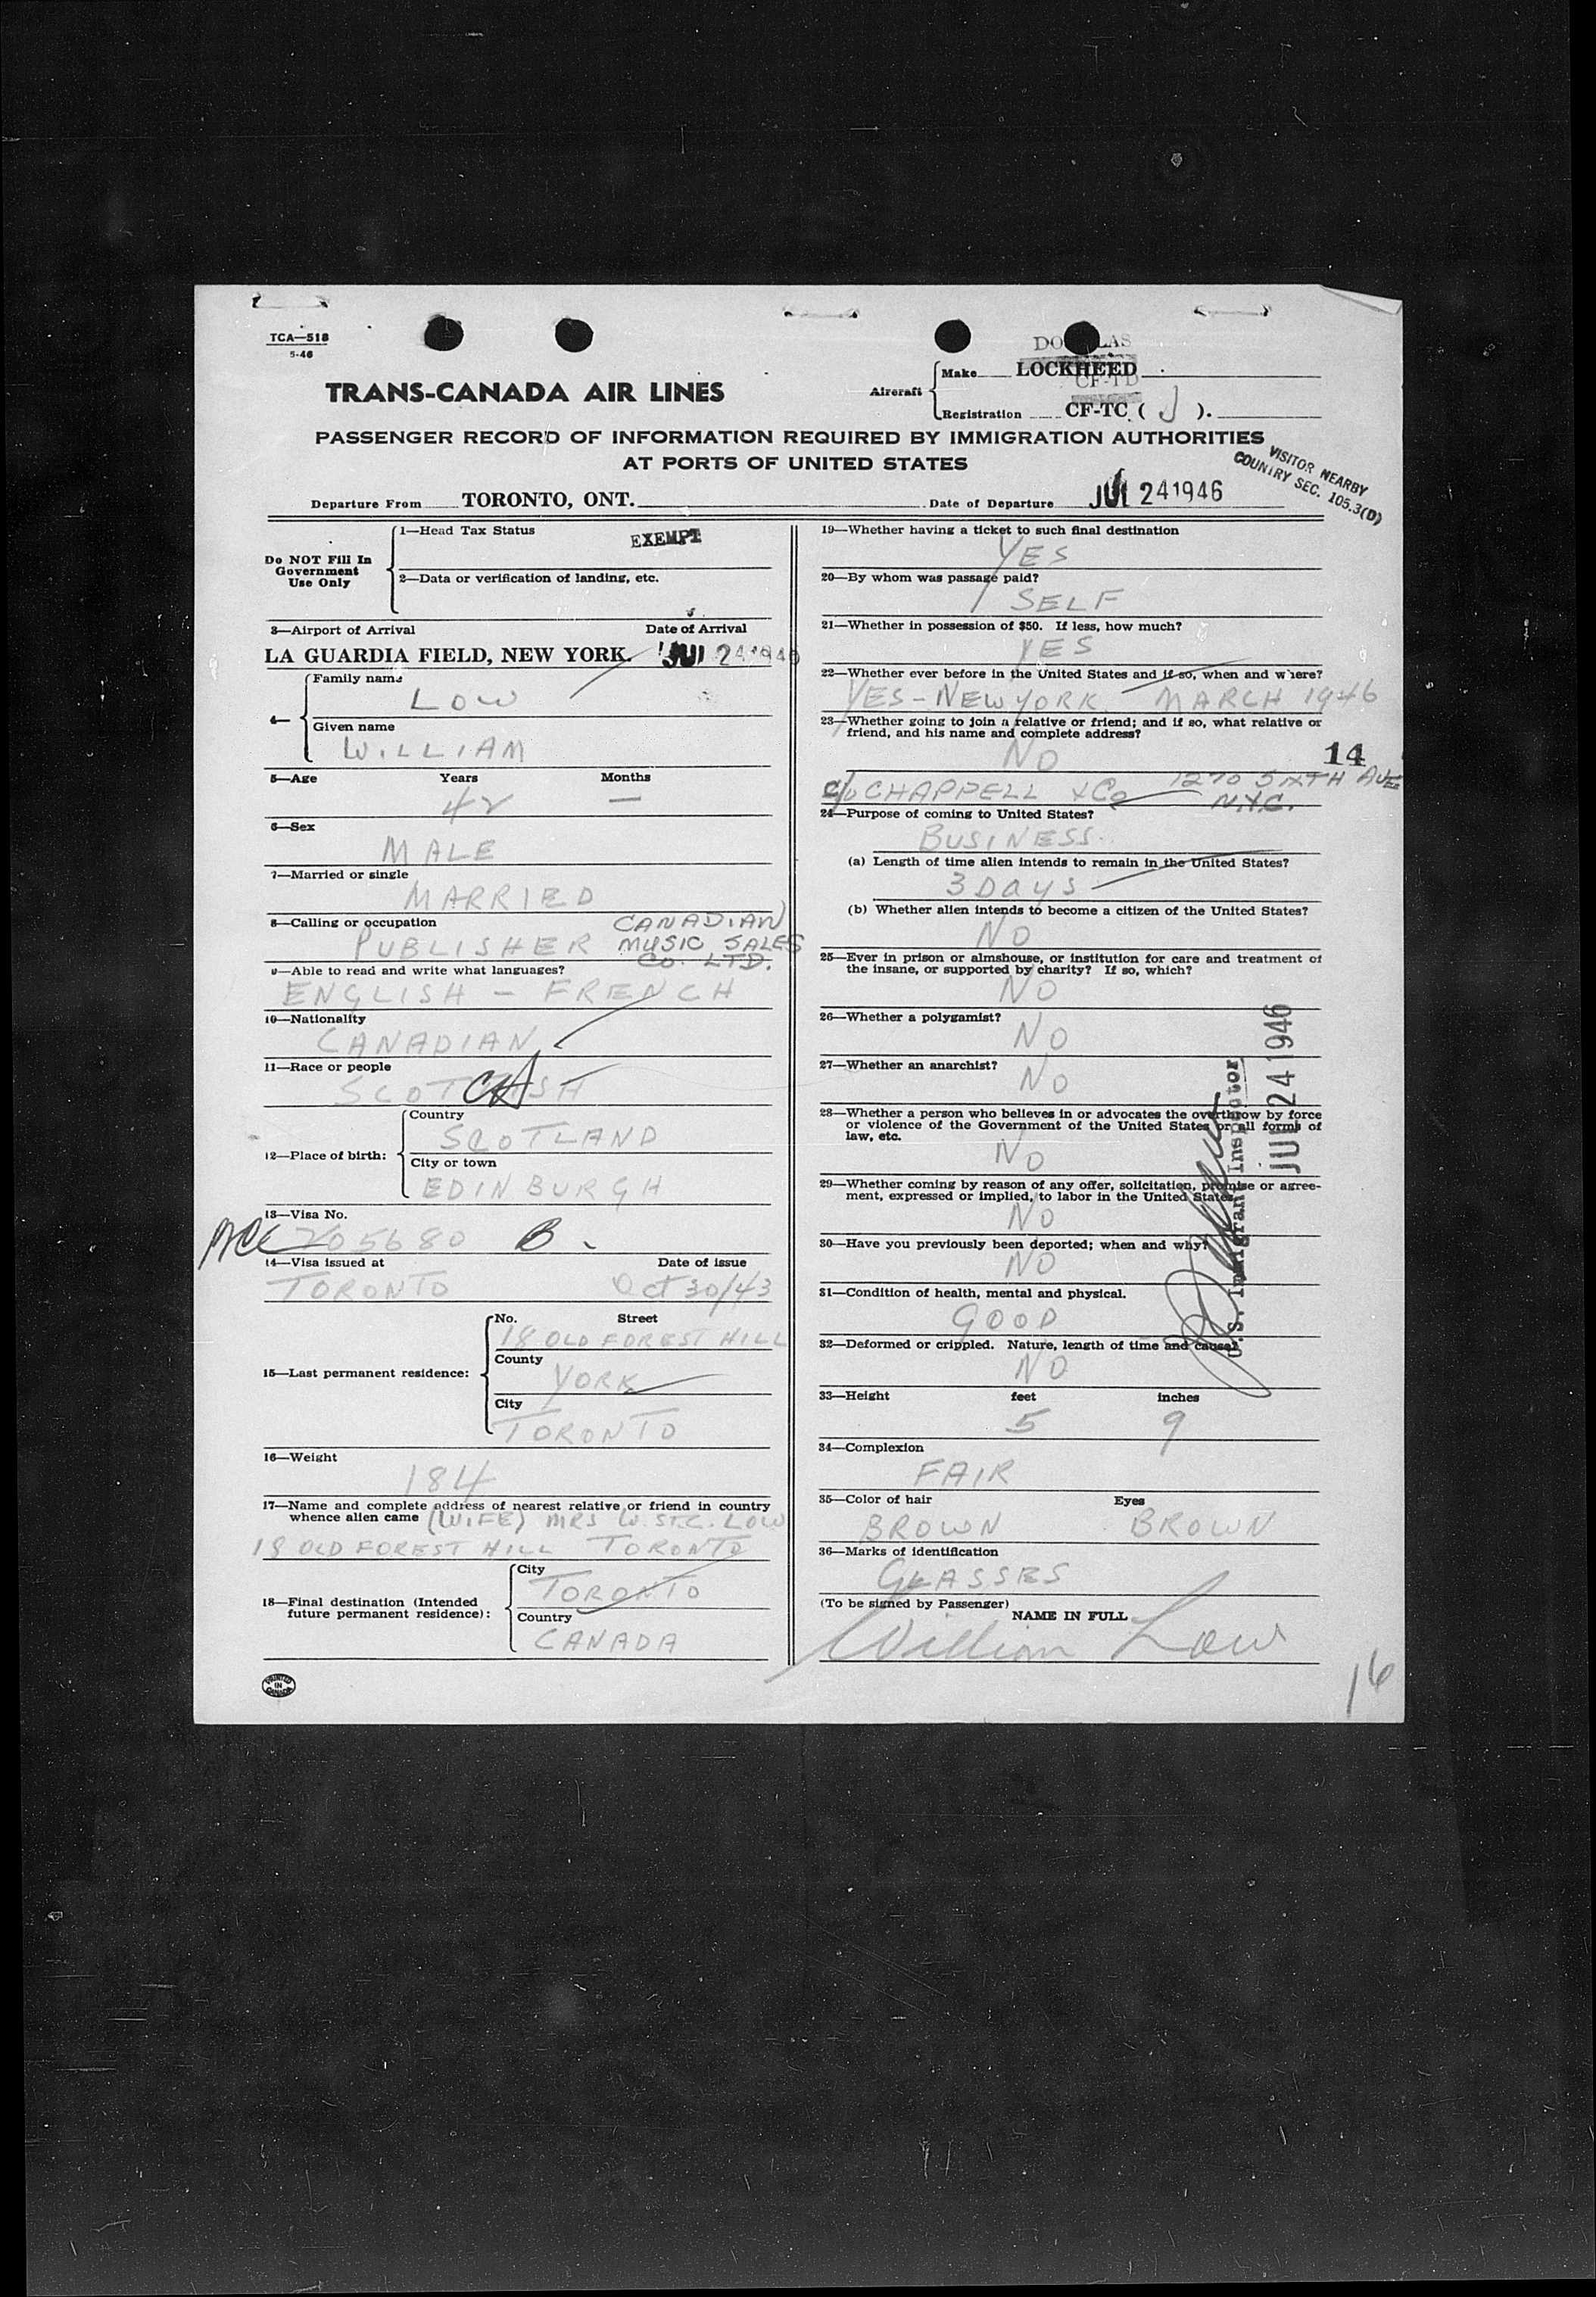 TCA—518
5-46
TRANS-CANADA AIR LINES
DOUGLAS
Aircraft
Make LOCKHEED
CF-TD
Registration CF-TC ( J ).
PASSENGER RECORD OF INFORMATION REQUIRED BY IMMIGRATION AUTHORITIES
AT PORTS OF UNITED STATES
VISITOR NEARBY
COUNTRY SEC. 105.3(D)
Departure From TORONTO, ONT. Date of Departure JUL 24 1946
Do NOT Fill In
Government
Use Only
1—Head Tax Status
EXEMPT
2—Data or verification of landing, etc.
3—Airport of Arrival Date of Arrival
LA GUARDIA FIELD, NEW YORK. JUL 24 1946
4— Family name
LOW
Given name
WILLIAM
5—Age Years Months
42 —
6—Sex
MALE
7—Married or single
MARRIED
8—Calling or occupation
PUBLISHER CANADIAN
MUSIC SALES
CO. LTD.
9—Able to read and write what languages?
ENGLISH — FRENCH
10—Nationality
CANADIAN
11—Race or people
SCOTTISH
12—Place of birth:
Country
SCOTLAND
City or town
EDINBURGH
13—Visa No.
205680 B.
14—Visa issued at Date of issue
TORONTO Oct 30/43
15—Last permanent residence:
No. Street
18 OLD FOREST HILL
County
YORK
City
TORONTO
16—Weight
184
17—Name and complete address of nearest relative or friend in country
whence alien came (WIFE) MRS W. ST.C. LOW
18 OLD FOREST HILL TORONTO
18—Final destination (Intended
future permanent residence):
City
TORONTO
Country
CANADA
PRINTED
IN
CANADA
19—Whether having a ticket to such final destination
YES
20—By whom was passage paid?
SELF
21—Whether in possession of $50. If less, how much?
YES
22—Whether ever before in the United States and if so, when and where?
YES - NEW YORK MARCH 1946
23—Whether going to join a relative or friend; and if so, what relative or
friend, and his name and complete address?
NO
14
c/o CHAPPELL & Co 1270 SIXTH AVE
N.Y.C.
24—Purpose of coming to United States?
BUSINESS.
(a) Length of time alien intends to remain in the United States?
3 DAYS
(b) Whether alien intends to become a citizen of the United States?
NO
25—Ever in prison or almshouse, or institution for care and treatment of
the insane, or supported by charity? If so, which?
NO
26—Whether a polygamist?
NO
27—Whether an anarchist?
NO
28—Whether a person who believes in or advocates the overthrow by force
or violence of the Government of the United States or all forms of
law, etc.
NO
29—Whether coming by reason of any offer, solicitation, promise or agree-
ment, expressed or implied, to labor in the United States
NO
30—Have you previously been deported; when and why?
NO
31—Condition of health, mental and physical.
GOOD
32—Deformed or crippled. Nature, length of time and cause?
NO
33—Height feet inches
5 9
34—Complexion
FAIR
35—Color of hair Eyes
BROWN BROWN
36—Marks of identification
GLASSES
(To be signed by Passenger)
NAME IN FULL
William Low
U.S. Immigrant Inspector
JUL 24 1946
16